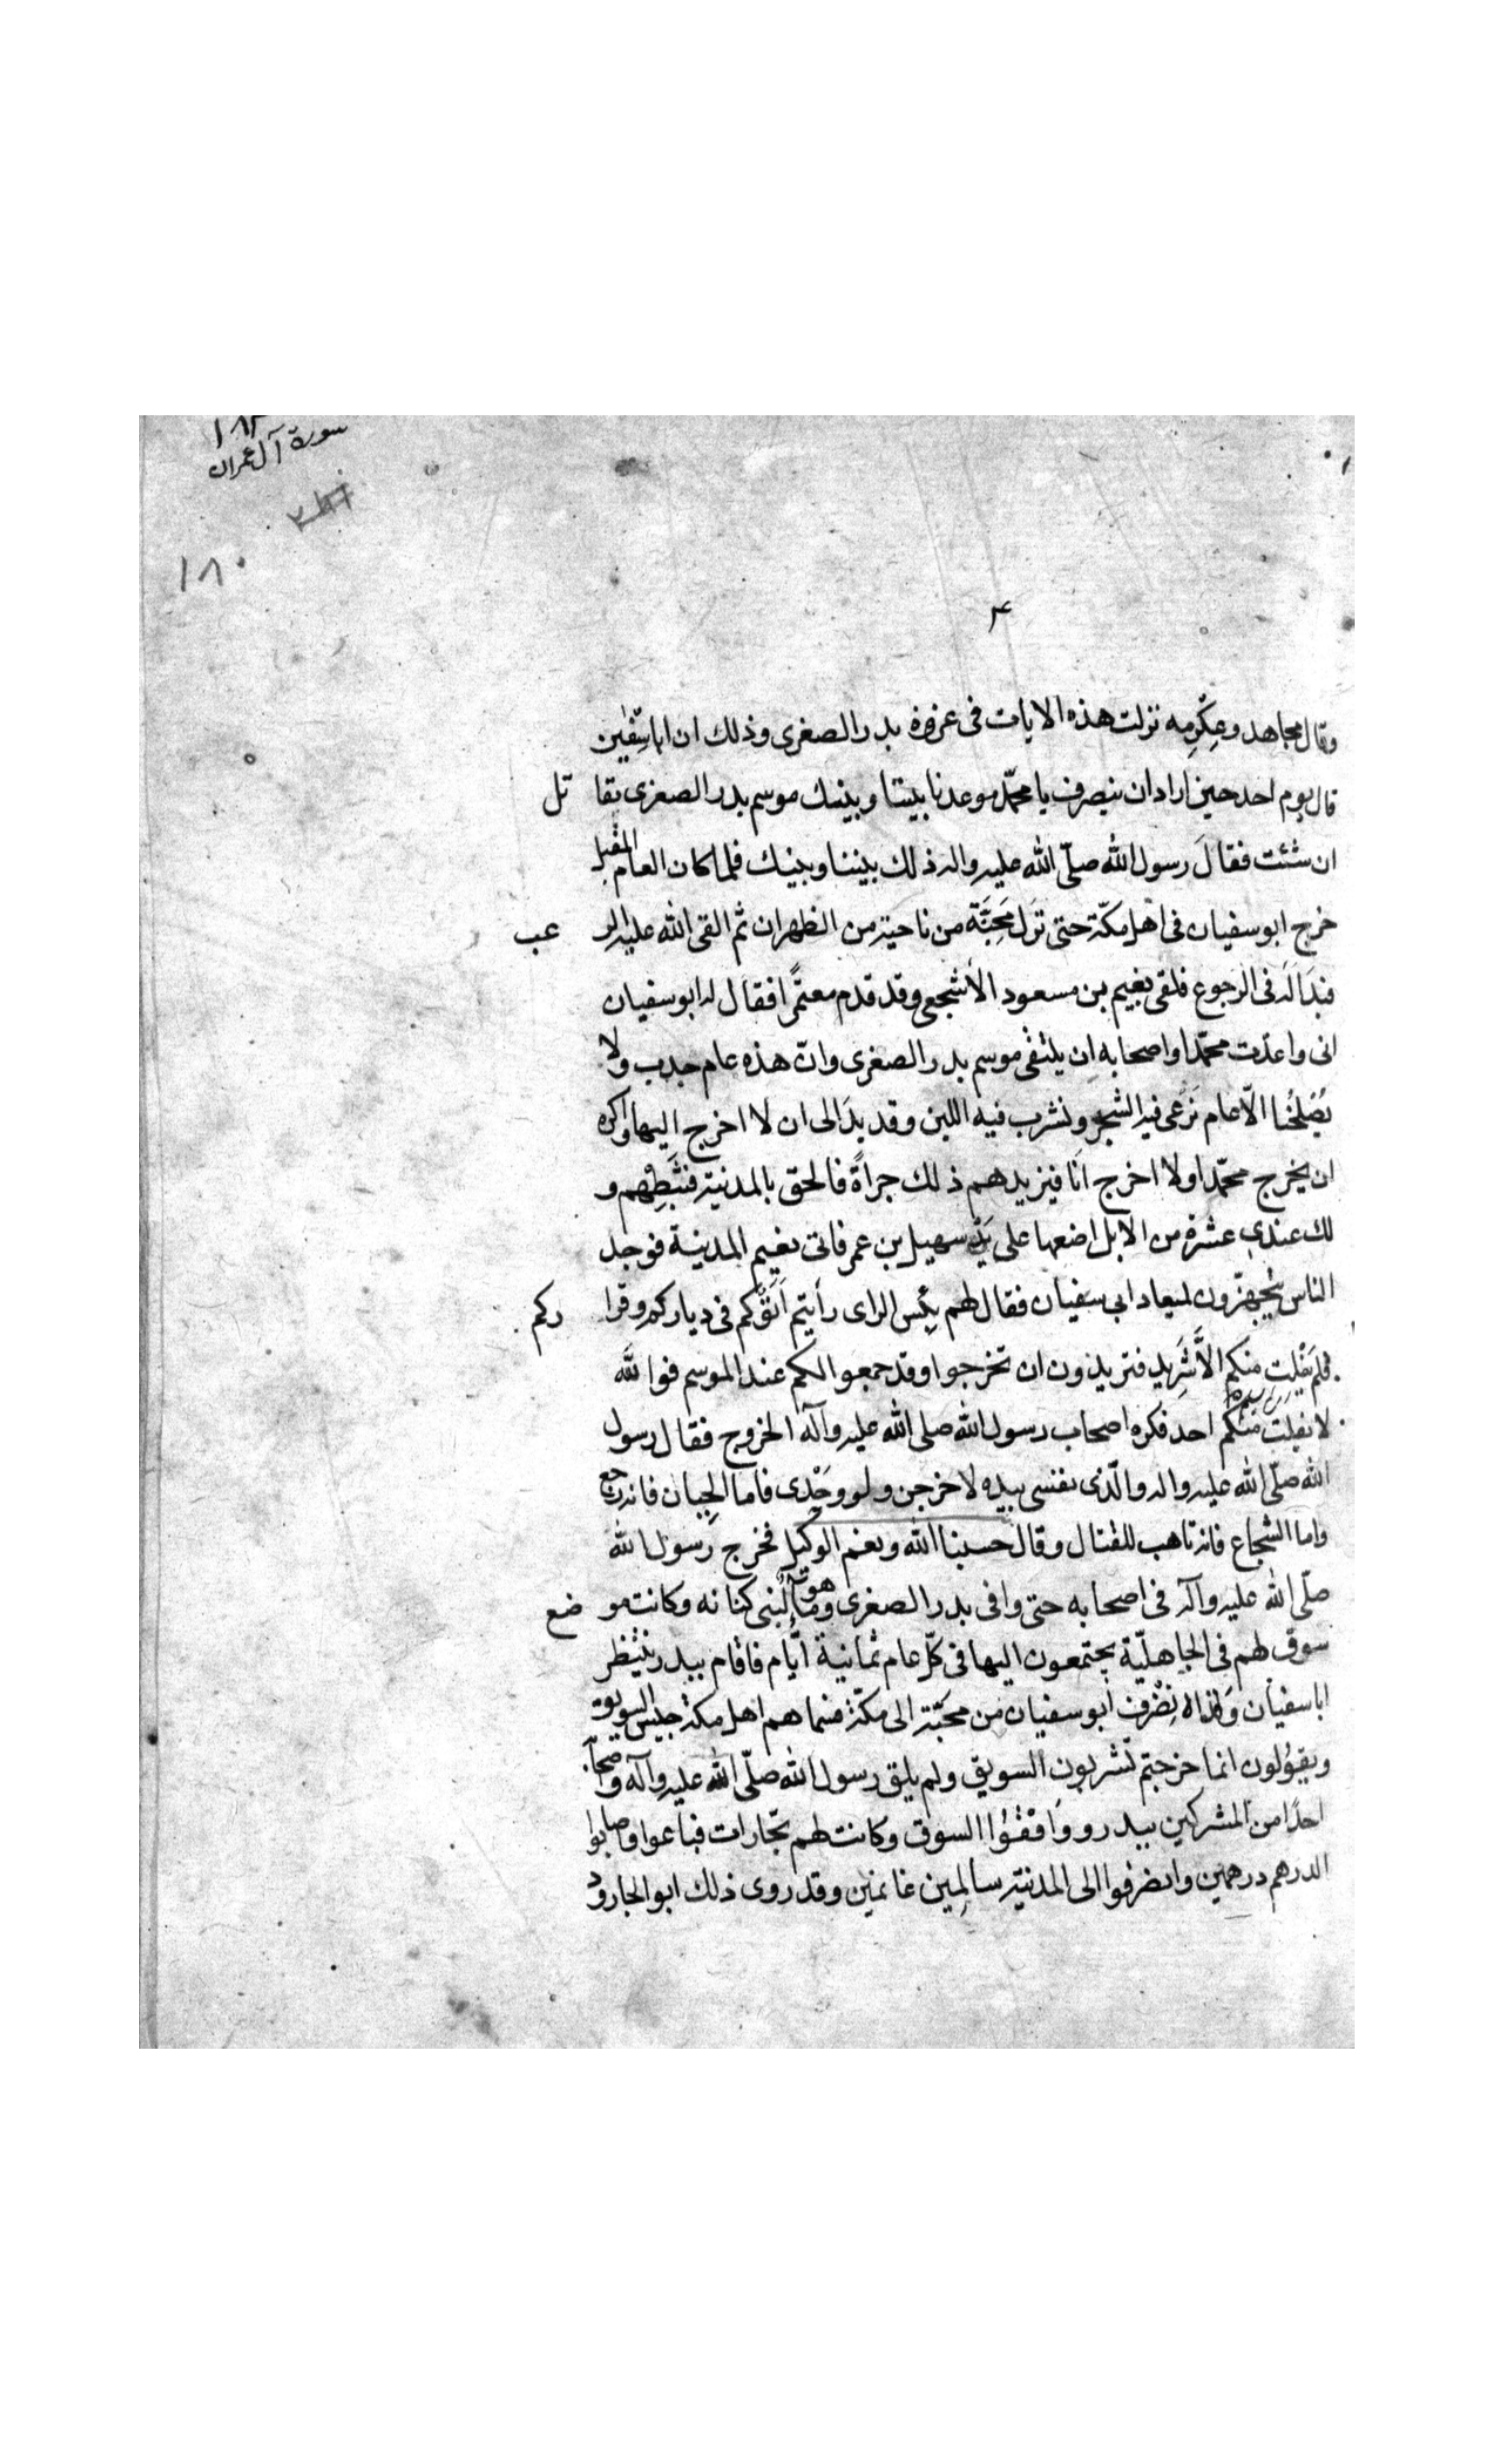 سورة آل عمران
١٨٠
وقال مجاهد وعكرمه نزلت هذه الايات فى غزوة بدر الصغرى وذلك ان اباسفين
قال يوم احد حين اراد ان ينصرف يا محمّد موعدنا بيننا وبينك موسم بدر الصغرى نقا تل
ان شئت فقال رسول الله صلّى الله عليه واله ذلك بيننا وبينك فلما كان العام المقبل
خرج ابو سفيان فى اهل مكّة حتى نزل مَجِنَّة من ناحية من الظهران ثم القى الله عليه الر عب
فبدَا لَه فى الرجوع فلقى نعيم بن مسعود الأشجعى وقد قدم معتمرًا فقال له ابو سفيان
انى واعدت محمّدا واصحابه ان يلتقى موسم بدر الصغرى وانّ هذه عام جدب ولا
يُصْلِحُنا الّا عام نَرْعى فيه الشجر ونشرب فيه اللبن وقد بدَا لى ان لا اخرج اليها واكره
ان يخرج محمّد اولا اخرج انَا فيزيدهم ذلك جراةً فالحق بالمدنية فثبّطهم و
لك عندى عشرة من الابل اضعها على يَدِ سهيل بن عمر فاتى نعيم المدينة فوجد
الناس يتجهزّون لميعاد ابى سفيان فقال لهم بِئس الراى رأيتم اَتَوْكم فى دياركم وقرا ركم
فلم يَفْلِت منكم الاَّ شَرِيد فتريدون ان تخرجوا وقد جمعوا لكم عند الموسم فوا لله
لا يفلت منكم احد فكره اصحاب رسول الله صلى الله عليه وآله الخروج فقال رسول
الله صلّى الله عليه واله والّذى نفسى بيده لاخرجن ولو وَحْدى فاما الجبان فانه رجع
واما الشجاع فانه تاهب للقتال وقال حسبنا الله ونعم الوكيل فخرج رسول الله
صلّى الله عليه وآله فى اصحابه حتى وافى بدر الصغرى وهو ماء لبنى كنانه وكانت مو ضع
سوق لهم فى الجاهليّة يجتمعون اليها فى كلّ عام ثمانية ايّام فاقام ببدر ينتظر
اباسفيان انصرف ابو سفيان من مجنّة الى مكّة فسماهم اهل مكة جيش السويق
ويقوُلون انما خرجتم تشربون السويق ولم يلق رسول الله صلّى الله عليه وآله واصحابه
احدًا من المشركين ببدر ووَافقوُا السوق وكانت لهم تجّارات فباعوا واصابوا
الدرهم درهمين وانصرفوا الى المدنية سالمين غانمين وقد روى ذلك ابو الجارود